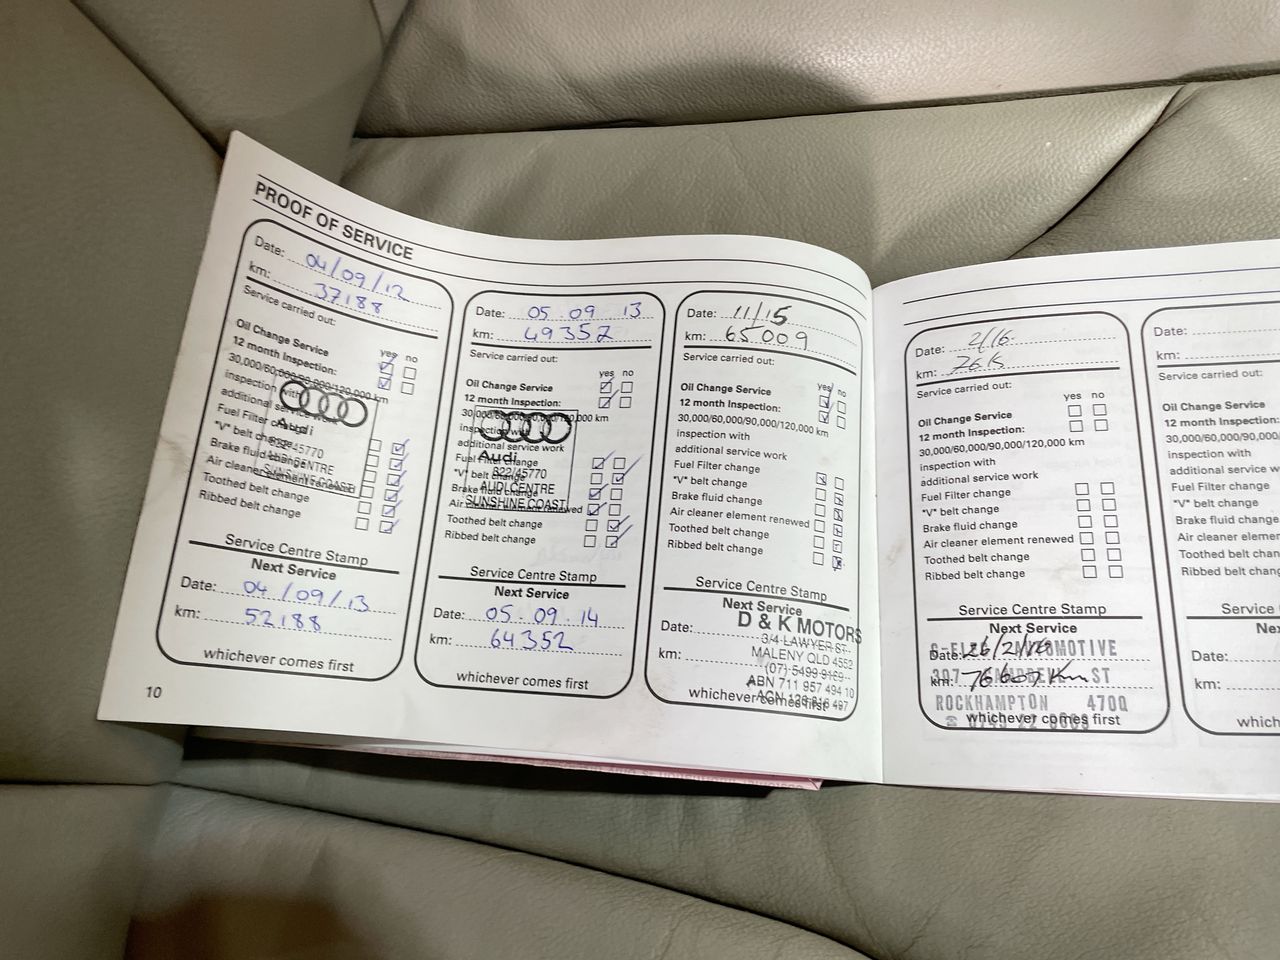 PROOF OF SERVICE
Date: 04/09/12
km: 37188
Service carried out:
yes no
Oil Change Service
12 month Inspection:
30,000/60,000/90,000/120,000 km
inspection with
additional service
Fuel Filter
"V" belt change
Brake fluid change
Air cleaner element renewed
Toothed belt change
Ribbed belt change
Audi
45770
AUDI CENTRE
SUNSHINE COAST
Service Centre Stamp
Next Service
Date: 04/09/13
km: 52188
whichever comes first
10
Date: 05.09.13
km: 49352
Service carried out:
yes no
Oil Change Service
12 month Inspection:
30,000/60,000/90,000/120,000 km
inspection with
additional service work
Fuel Filter change
"V" belt change
Brake fluid change
Air cleaner element renewed
Toothed belt change
Ribbed belt change
Audi
822/45770
AUDI CENTRE
SUNSHINE COAST
Service Centre Stamp
Next Service
Date: 05.09.14
km: 64352
whichever comes first
Date: 11/15
km: 65009
Service carried out:
yes no
Oil Change Service
12 month Inspection:
30,000/60,000/90,000/120,000 km
inspection with
additional service work
Fuel Filter change
"V" belt change
Brake fluid change
Air cleaner element renewed
Toothed belt change
Ribbed belt change
Service Centre Stamp
Next Service
D & K MOTORS
Date:
3/4 LAWYER ST.
MALENY QLD 4552
km:
(07) 5499 9189
ABN 711 957 494 10
whichever comes first
Date: 2/16
km:
Service carried out:
yes no
Oil Change Service
12 month Inspection:
30,000/60,000/90,000/120,000 km
inspection with
additional service work
Fuel Filter change
"V" belt change
Brake fluid change
Air cleaner element renewed
Toothed belt change
Ribbed belt change
Service Centre Stamp
Next Service
Date:
AUTOMOTIVE
km:
ST
ROCKHAMPTON 4700
whichever comes first
Date:
km:
Service carried out:
Oil Change Service
12 month Inspection:
30,000/60,000/90,
inspection with
additional service w
Fuel Filter change
"V" belt change
Brake fluid change
Air cleaner elemen
Toothed belt chan
Ribbed belt chang
Service
Nex
Date:
km:
which